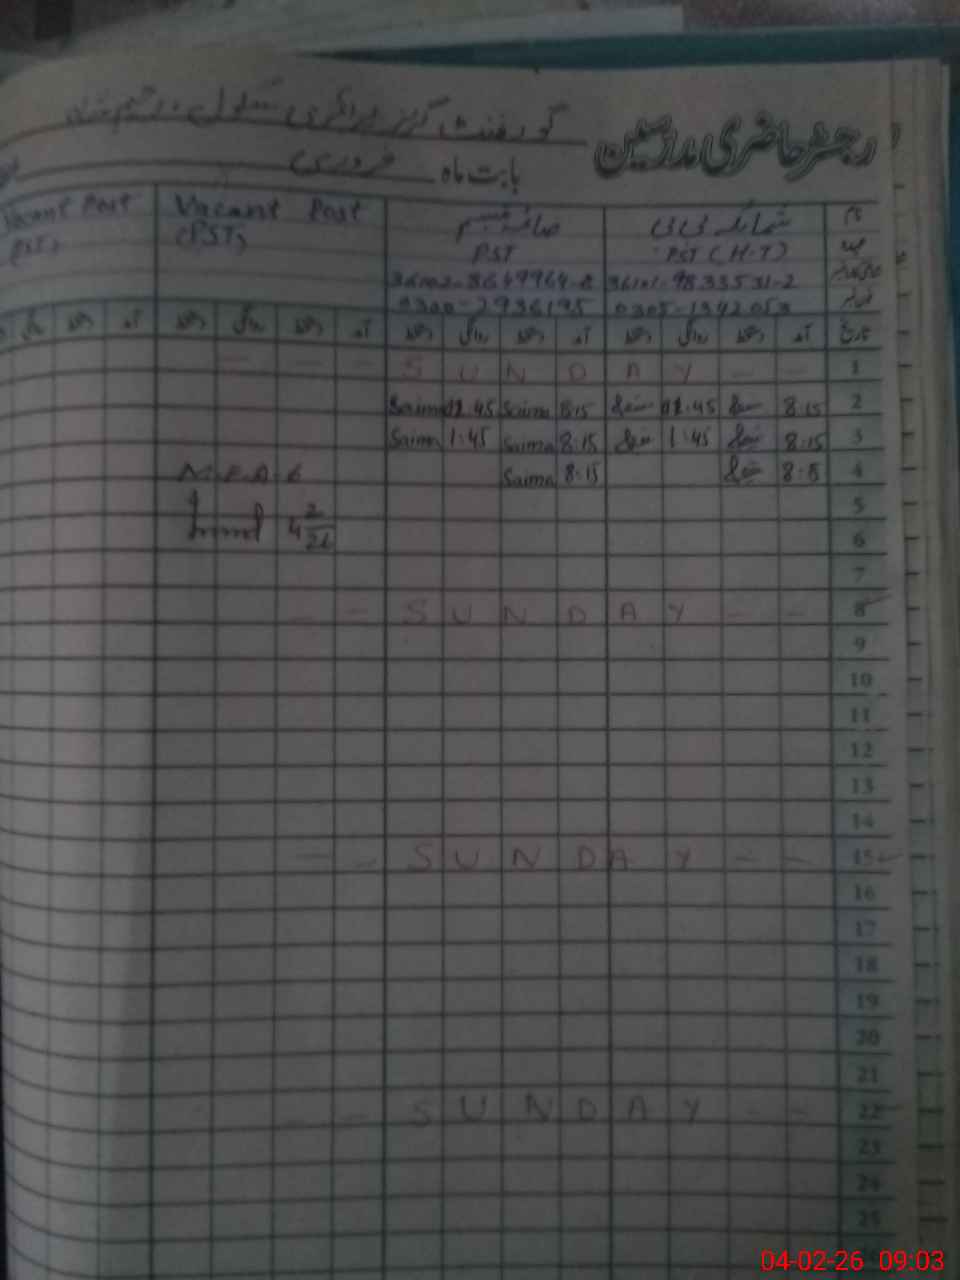 رجسٹر حاضری مدرسین گورنمنٹ گرلز پرائمری سکول
بابت ماہ فروری
نام شمائلہ بی بی صائمہ تبسم Vacant Post Vacant Post
عہدہ PST (H.T) PST (PST) (PST)
36102-8649964-8
0305-1342053 0300-7936195
تاریخ آمد دستخط روانگی دستخط آمد دستخط روانگی دستخط آمد دستخط روانگی دستخط آمد دستخط روانگی
1 - - S U N D A Y - - - -
2 8:15 45 8:15 Saima 45 Saima
3 8:15 1:45 8:15 Saima 1:45 Saima
4 8:15 Saima
M.E.A-6
5
4 2/26
6
7
8 - - S U N D A Y -
9
10
11
12
13
14
15 - - S U N D A Y - -
16
17
18
19
20
21
22 - - S U N D A Y - -
23
24
25
04-02-26 09:03